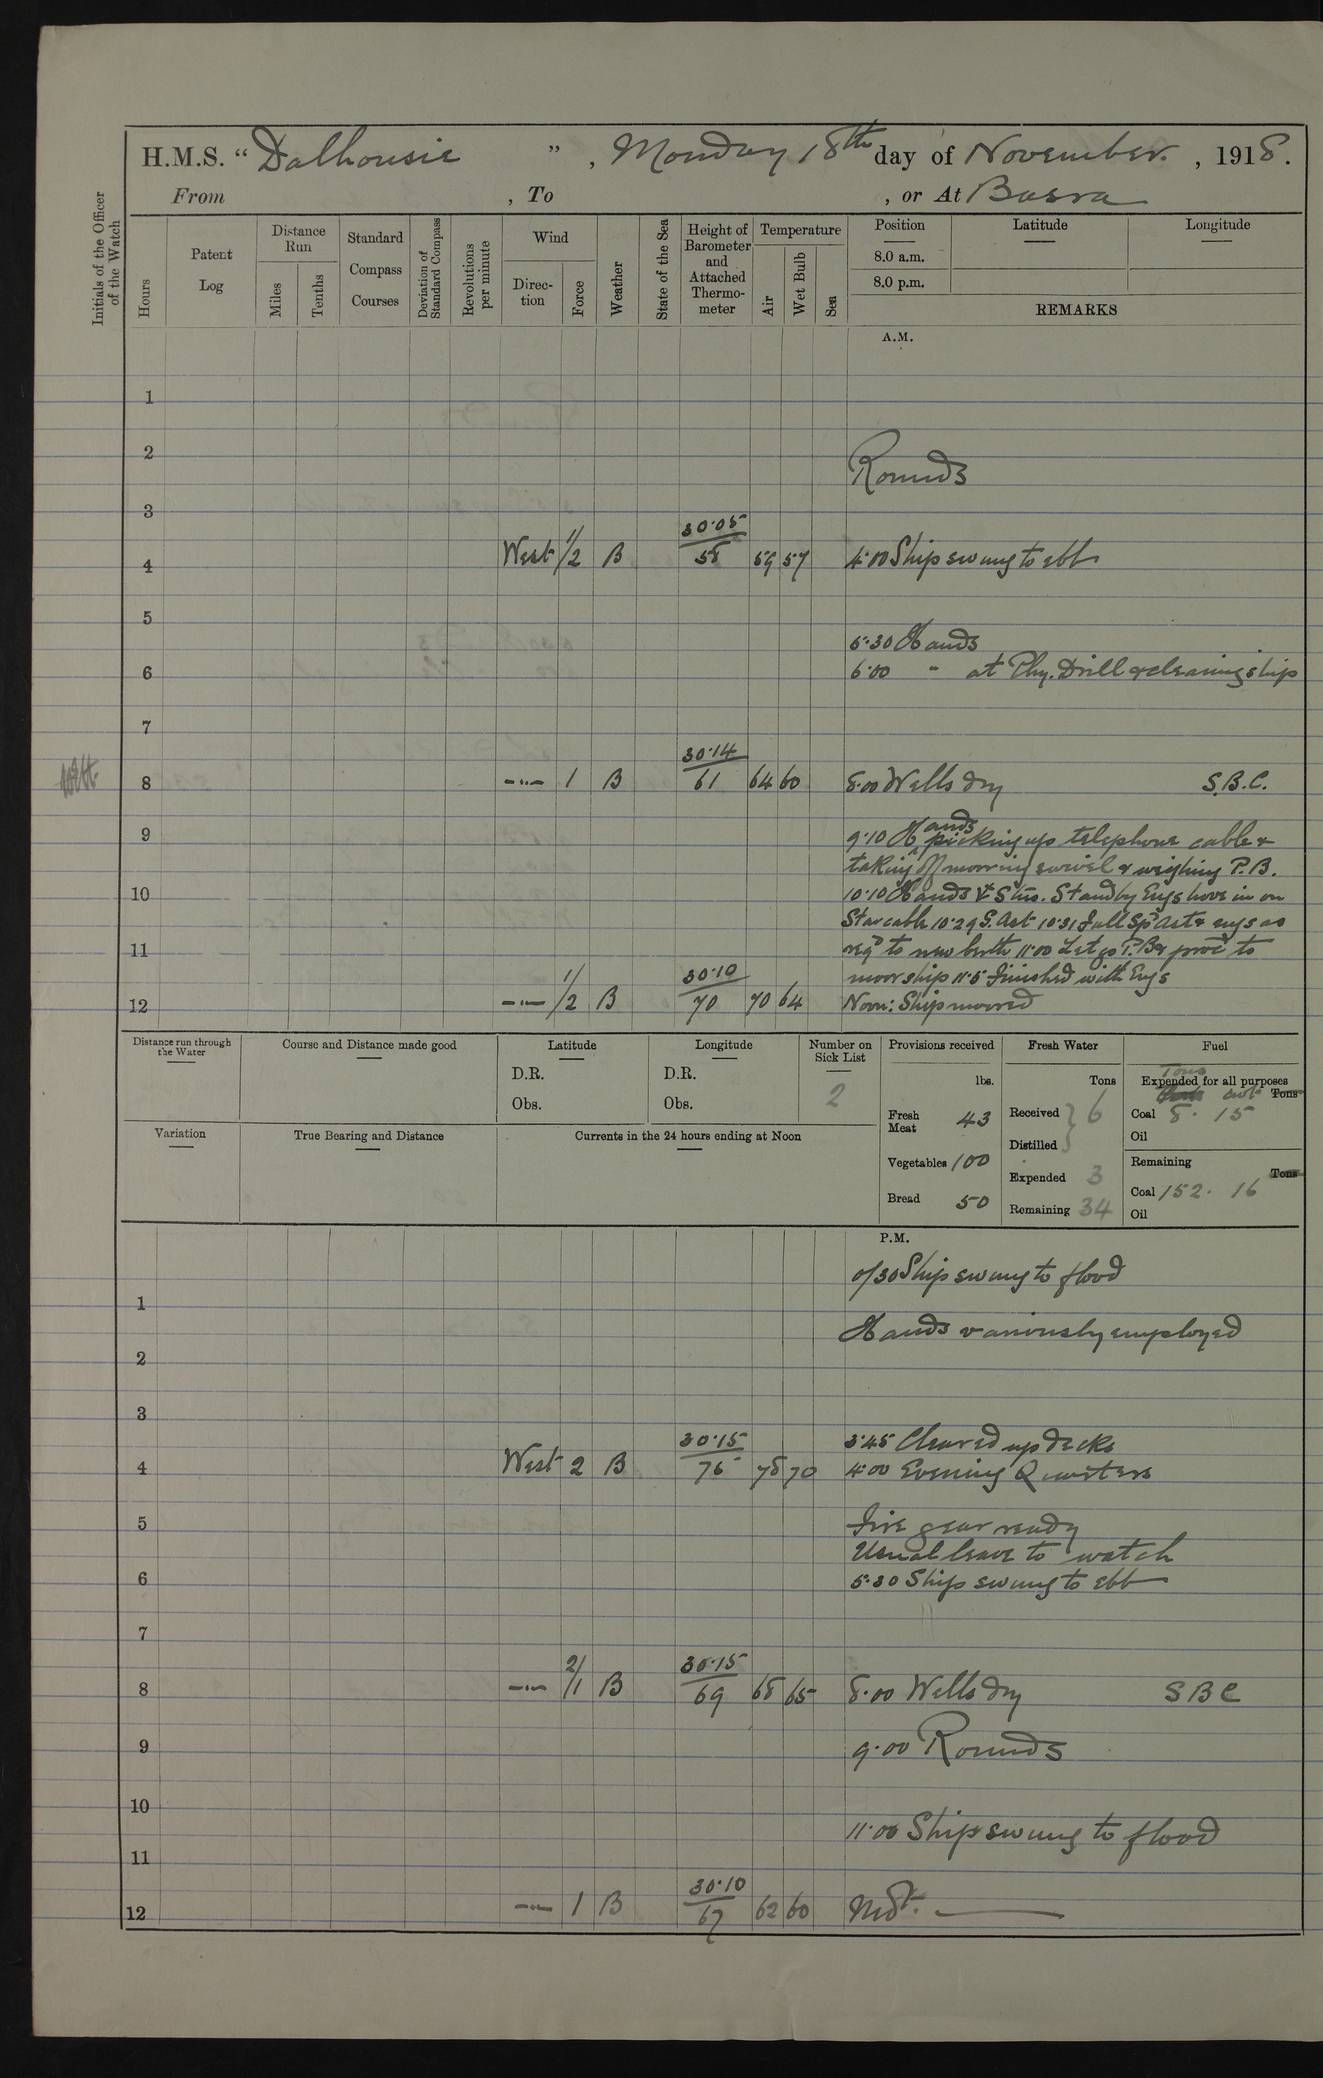 H.M.S. "Dalhousie", Monday 18th day of November, 1918.
From , To , or At Basra
Initials of the Officer of the Watch
Hours
Patent Log
Distance Run
Miles
Tenths
Standard Compass Courses
Deviation of Standard Compass
Revolutions per minute
Wind
Direction
Force
Weather
State of the Sea
Height of Barometer and Attached Thermometer
Temperature
Air
Wet Bulb
Sea
Position
Latitude
Longitude
8.0 a.m.
8.0 p.m.
REMARKS
A.M.
1
2
Rounds
3
4 West 1/2 B 30·05 58 59 57 4·00 Ship swung to ebb
5
5·30 Hands
6 6·00 " at Phy. Drill & cleaning ship
7
8 -"- 1 B 30·14 61 64 60 8·00 Wells dry S.B.C.
9 9·10 Hands picking up telephone cable &
taking off mooring swivel & weighing P.B.
10 10·10 Hands Stns. Standby Engs hove in on
Star cable 10·29 S. Ast 10·31 Full Spd Ast & engs as
11 reqd to new berth 11·00 Let go P.B & procd to
moor ship 11·5 Finished with Engs
12 -"- 1/2 B 30·10 70 70 64 Noon: Ship moored
Distance run through the Water
Course and Distance made good
Latitude
D.R.
Obs.
Longitude
D.R.
Obs.
Number on Sick List
2
Provisions received
lbs.
Fresh Meat 43
Vegetables 100
Bread 50
Fresh Water
Tons
Received } 6
Distilled
Expended 3
Remaining 34
Fuel
Expended for all purposes
Tons cwt Tons
Coal 8· 15
Oil
Remaining
Tons
Coal 152· 16
Oil
Variation
True Bearing and Distance
Currents in the 24 hours ending at Noon
P.M.
0/30 Ship swung to flood
1
Hands variously employed
2
3
3·45 Cleared up decks
4 West 2 B 30·15 76 78 70 4·00 Evening Quarters
5 Fire gear ready
Usual leave to watch
6 5·30 Ship swung to ebb
7
8 -"- 2/1 B 30·15 69 68 65 8·00 Wells dry SBC
9 9·00 Rounds
10
11·00 Ship swung to flood
11
12 -"- 1 B 30·10 67 62 60 Mdt.